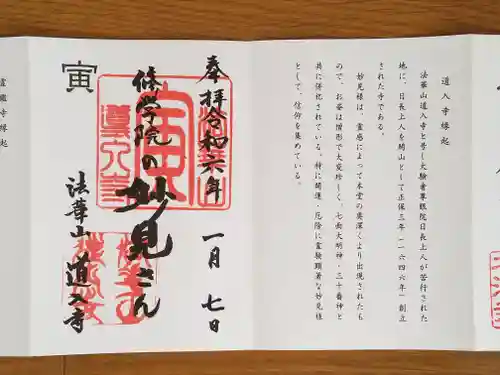 道入寺縁起
法華山道入寺と号し大験者尊眼院日長上人が苦行された
地に、日長上人を開山として正保三年(一六四六年)創立
された寺である。
妙見様は、霊感によって本堂の奥深くより出現されたも
ので、お姿は憤形で大変珍しく、七面大明神・三十番神と
共に併祀されている。特に開運・厄除に霊験顕著な妙見様
として、信仰を集めている。
奉拝 令和六年 一月 七日
修学院の妙見さん
寅
法華山 道入寺
霊鑑寺縁起